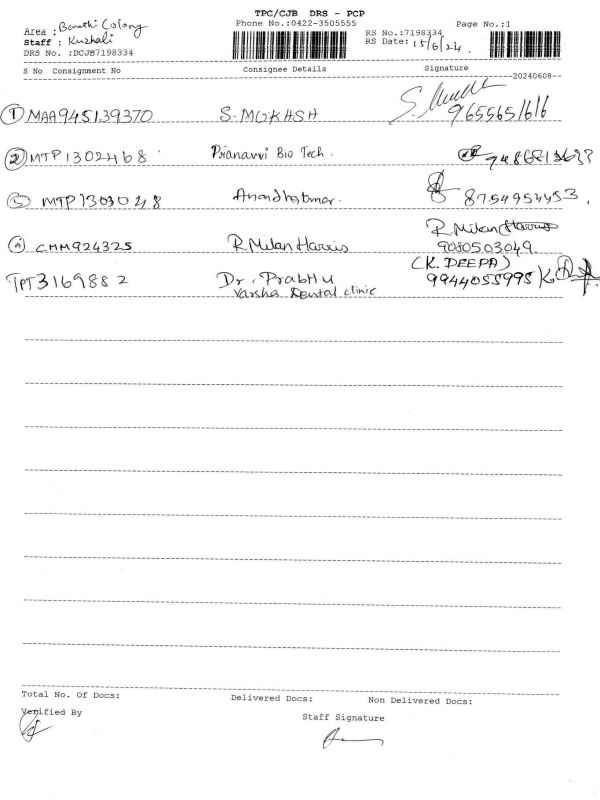 TPC/CJB DRS - PCP
Phone No.:0422-3505555
Page No.:1
Area : Barathi Colony
Staff : Kuzhali
DRS No. :DCJB7198334
RS No.:7198334
RS Date: 15/6/24.
S No Consignment No Consignee Details Signature
20240608
① MAA945139370 S. MUKHSH 9655651616
② MTP1302468 Pranavvi Bio Tech.
③ MTP1303048 Anandhakumar. 8754954453.
④ CMM924325 R. Milan Harris R. Milan Harris 9080503049.
TPT3169882 Dr. Prabhu (K. DEEPA)
Varsha Dental clinic 9944055995
Total No. Of Docs: Delivered Docs: Non Delivered Docs:
Verified By
Staff Signature